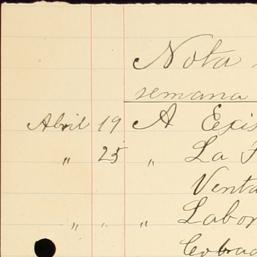 Nota
semana
Abril 19 A Exis
" 25 " La F
Venta
" " " Labor
Cobrad